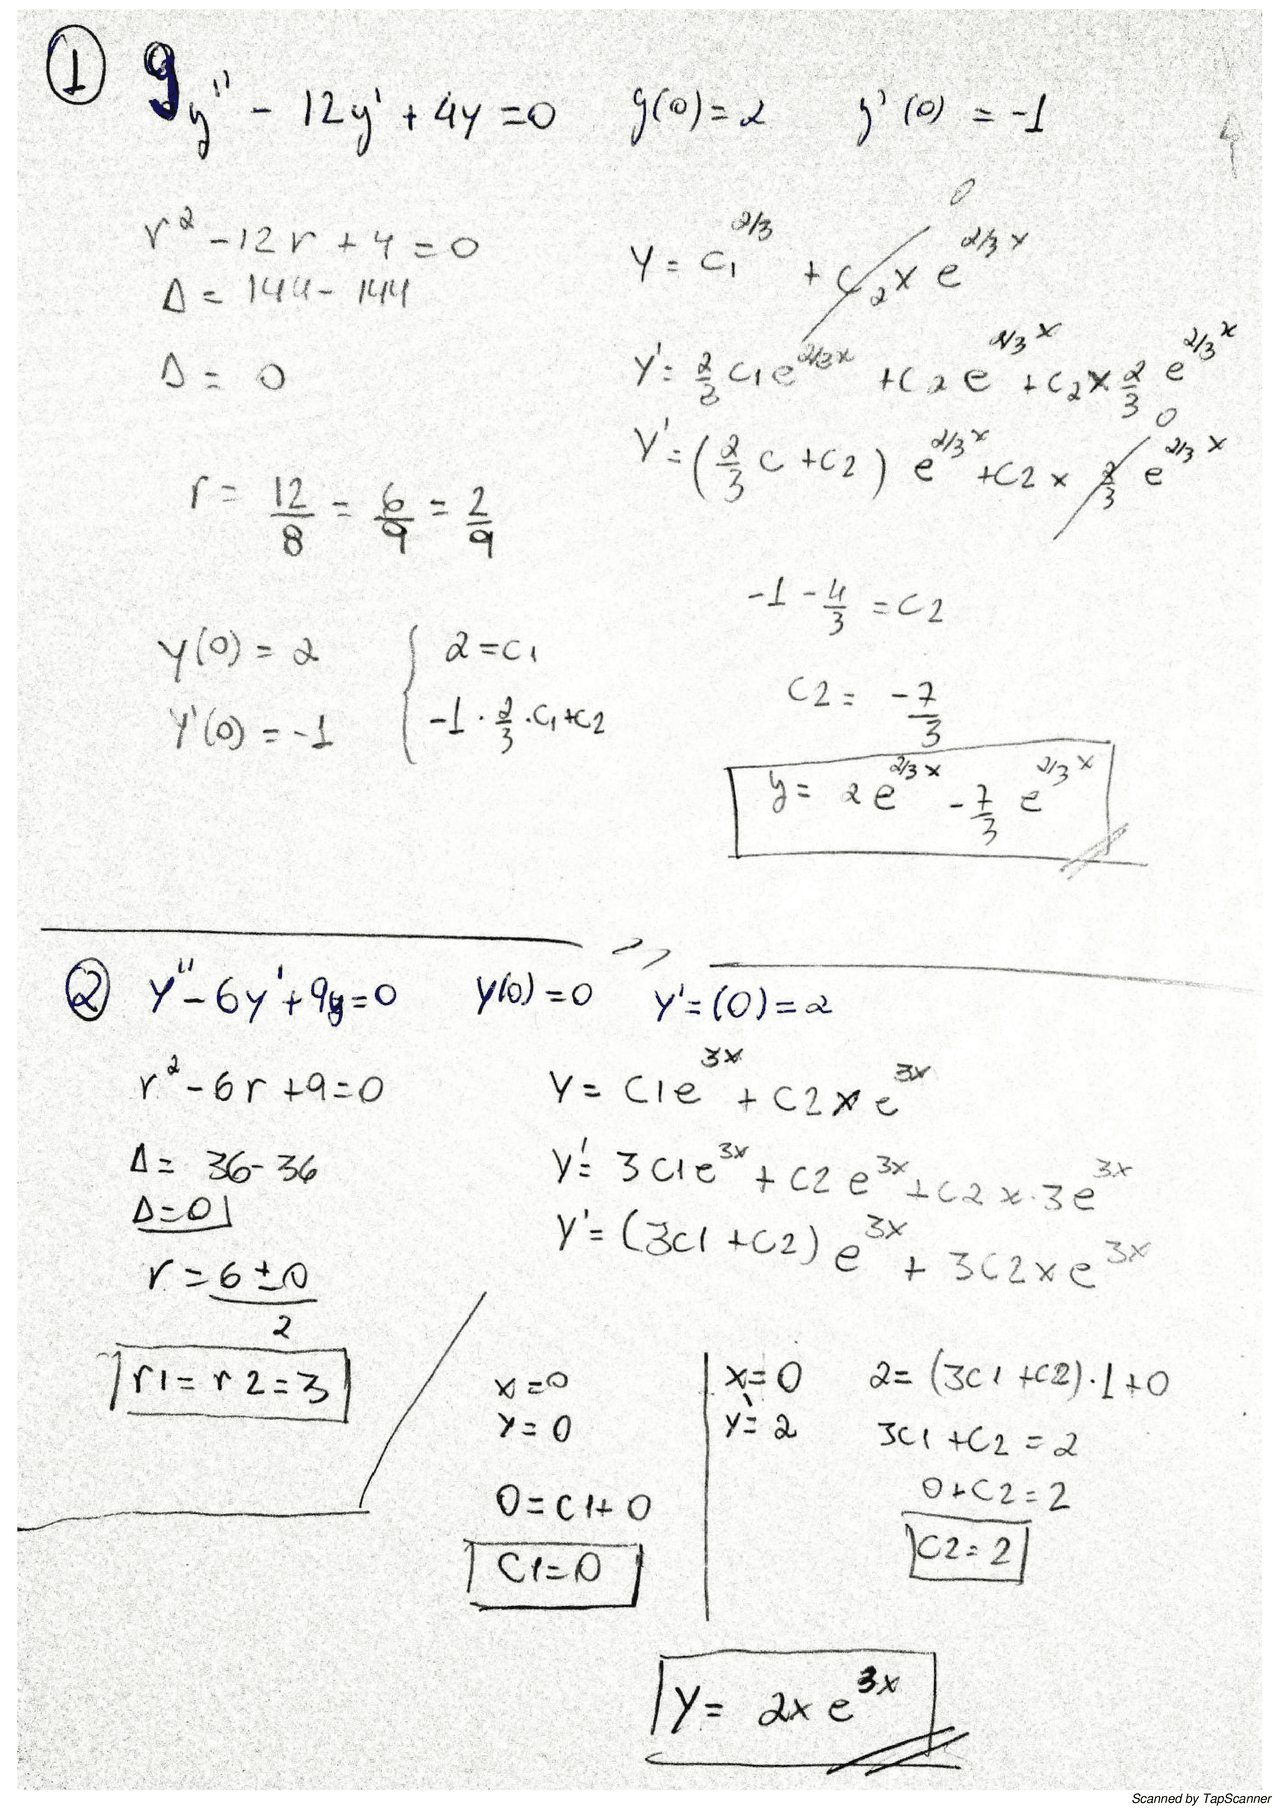 ① 9y'' - 12y' + 4y = 0 y(0) = 2 y'(0) = -1
r² - 12r + 4 = 0
Δ = 144 - 144
Δ = 0
r = 12/8 = 6/9 = 2/9
y(0) = 2 { 2 = C1
y'(0) = -1 -1 · 2/3 · C1 + C2
0
y = C1^2/3 + C2 x e^2/3x
y' = 2/3 C1 e^2/3x + C2 e^2/3x + C2 x 2/3 e^2/3x
0
y' = (2/3 C + C2) e^2/3x + C2 x 2/3 e^2/3x
-1 - 4/3 = C2
C2 = -7/3
y = 2e^2/3x - 7/3 e^2/3x
② y'' - 6y' + 9y = 0 y(0) = 0 y' = (0) = 2
r² - 6r + 9 = 0
Δ = 36 - 36
Δ = 0
r = 6 ± 0 / 2
r1 = r2 = 3
y = C1e^3x + C2xe^3x
y' = 3C1e^3x + C2e^3x + C2x·3e^3x
y' = (3C1 + C2) e^3x + 3C2xe^3x
x = 0
y = 0
0 = C1 + 0
C1 = 0
x = 0 2 = (3C1 + C2)·1 + 0
y' = 2 3C1 + C2 = 2
0 + C2 = 2
C2 = 2
y = 2xe^3x
Scanned by TapScanner